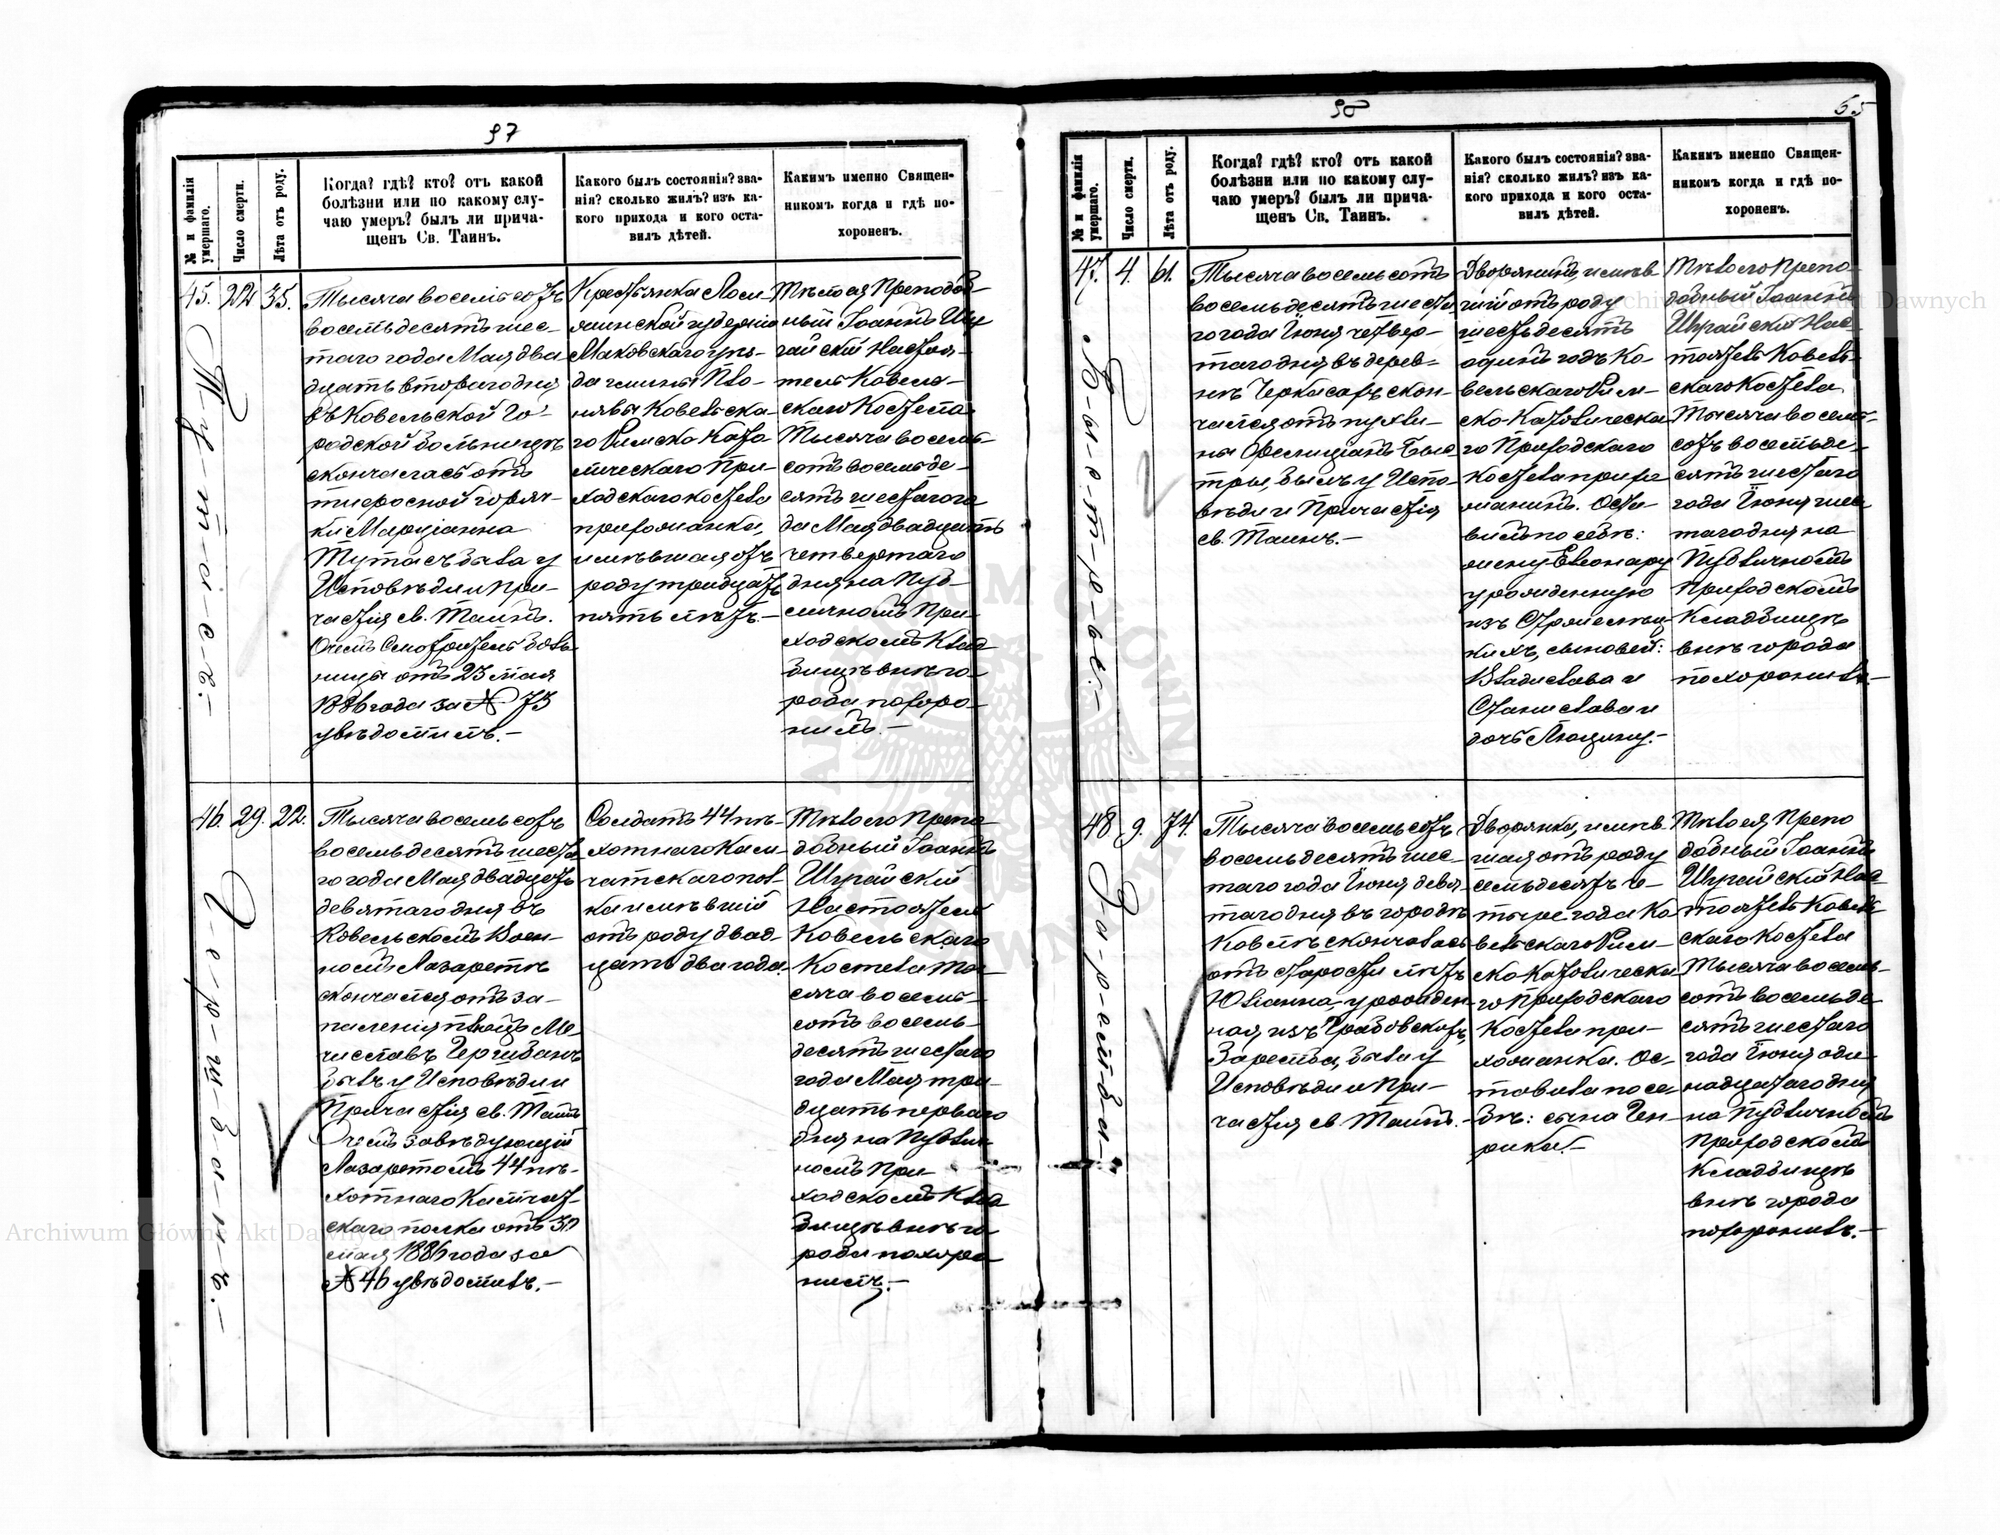 97
№ и фамилія умершаго.
Число смерти.
Лѣта отъ роду.
Когда? гдѣ? кто? отъ какой
болѣзни или по какому слу-
чаю умеръ? былъ ли прича-
щенъ Св. Таинъ.
Какого былъ состоянія? зва-
нія? сколько жилъ? изъ ка-
кого прихода и кого оста-
вилъ дѣтей.
Каким именно Священ-
никомъ когда и гдѣ по-
хороненъ.
45.
22
35.
Тысяча восемь сотъ
восемьдесятъ шес-
таго года Мая два
дцать втораго дня
въ Ковельской Го-
родской больницѣ
скончалась отъ
тифозной горяч-
ки Маріанна
была у
Исповѣди и При-
частія св. Таинъ.
О чемъ Смотритель боль
ницы отъ 23 мая
1886 года за № 75
увѣдомилъ.-
Крестьянка Лом-
жинской губерніи
Маковскаго уѣз-
да гмины
Ковельска-
го Римско Като-
лическаго При-
ходскаго костела
прихожанка,
имѣвшая отъ
роду тридцать
пять лѣтъ-
Тѣло ея Преподоб-
ный Іоаннъ
Настоя-
тель Ковель-
скаго Костела
Тысяча восемь-
сотъ восемьде-
сятъ шестаго го
да Мая двадцать
четвертаго
дня на Пуб-
личномъ При-
ходскомъ Клад
бищѣ внѣ го-
рода похоро-
нилъ.-
46.
29.
22.
Тысяча восемь сотъ
восемьдесятъ шеста
го года Мая двадцать
девятаго дня въ
Ковельскомъ Воен-
номъ Лазаретѣ
скончался отъ за-
паленія плюцъ Ме-
числавъ
былъ у Исповѣди и
Причастія св. Таинъ
О чемъ завѣдующій
Лазаретомъ 44 пѣ-
хотнаго Камчат-
скаго полка отъ 30
мая 1886 года за
№ 46 увѣдомилъ.-
Солдатъ 44 пѣ-
хотнаго Кам-
чатскаго пол-
ка имѣвшій
отъ роду двад-
цать два года.
Тѣло его Препо
добный Іоаннъ
Настоятель
Ковельскаго
Костела Ты-
сяча восемь-
сотъ восемь-
десятъ шестаго
года Мая три-
дцать перваго
дня на Публич
номъ При-
ходскомъ Клад
бищѣ внѣ го
рода похоро
нилъ.-
98
55
№ и фамилія умершаго.
Число смерти.
Лѣта отъ роду.
Когда? гдѣ? кто? отъ какой
болѣзни или по какому слу-
чаю умеръ? былъ ли прича-
щенъ Св. Таинъ.
Какого былъ состоянія? зва-
нія? сколько жилъ? изъ ка-
кого прихода и кого оста-
вилъ дѣтей.
Каким именно Священ-
никомъ когда и гдѣ по-
хороненъ.
47.
4.
61.
Быстры.-
Тысяча восемь сотъ
восемьдесятъ шеста
го года Іюня четвер-
таго дня въ дерев-
нѣ Черкасахъ скон-
чался отъ пухли-
ны Фелиціанъ Быс
тры, былъ у Испо-
вѣди и Причастія
св. Таинъ.-
Дворянинъ, имѣв
шій отъ роду
шестьдесятъ
одинъ годъ Ко-
вельскаго Рим-
ско-Католическа
го Приходскаго
Костела прихо
жанинъ. Оста-
вилъ по себѣ:
жену Елеонару
урожденную
изъ
сыновей:
Владислава и
Станислава и
дочь Люцину.-
Тѣло его Препо-
добный Іоаннъ
Нас-
тоятель Ковель-
скаго Костела
Тысяча восемь-
сотъ восемьде-
сятъ шестаго
года Іюня шес-
таго дня на
Публичномъ
Приходскомъ
Кладбищѣ
внѣ города
похоронилъ.-
48
9.
74.
Зарембы.-
Тысяча восемь сотъ
восемьдесятъ шес-
таго года Іюня девя
таго дня въ городѣ
Ковлѣ скончалась
отъ старости лѣтъ
Юліанна, урожден-
ная изъ Грабовскихъ,
Заремба, была у
Исповѣди и При-
частія св. Таинъ.-
Дворянка, имѣв-
шая отъ роду
семьдесятъ че-
тыре года Ко
вельскаго Рим-
ско Католическа-
го Приходскаго
Костела при-
хожанка. Ос-
тавила по се-
бѣ: сына Ген-
рика.-
Тѣло ея Препо
добный Іоаннъ
Нас-
тоятель Ковель-
скаго Костела
Тысяча восемь-
сотъ восемьде-
сятъ шестаго
года Іюня оди-
надцатаго дня
на Публичномъ
Приходскомъ
Кладбищѣ
внѣ города
похоронилъ.-
Archiwum Główne Akt Dawnych
Archiwum Główne Akt Dawnych